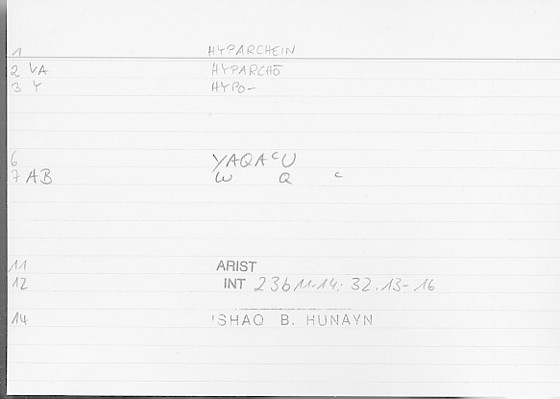 1 HYPARCHEIN
2 VA HYPARCHŌ
3 Y HYPO-
6 YAQAᶜU
7 AB W Q ᶜ
11 ARIST
12 INT 23b11-14; 32.13-16
14 'SHAQ B. HUNAYN